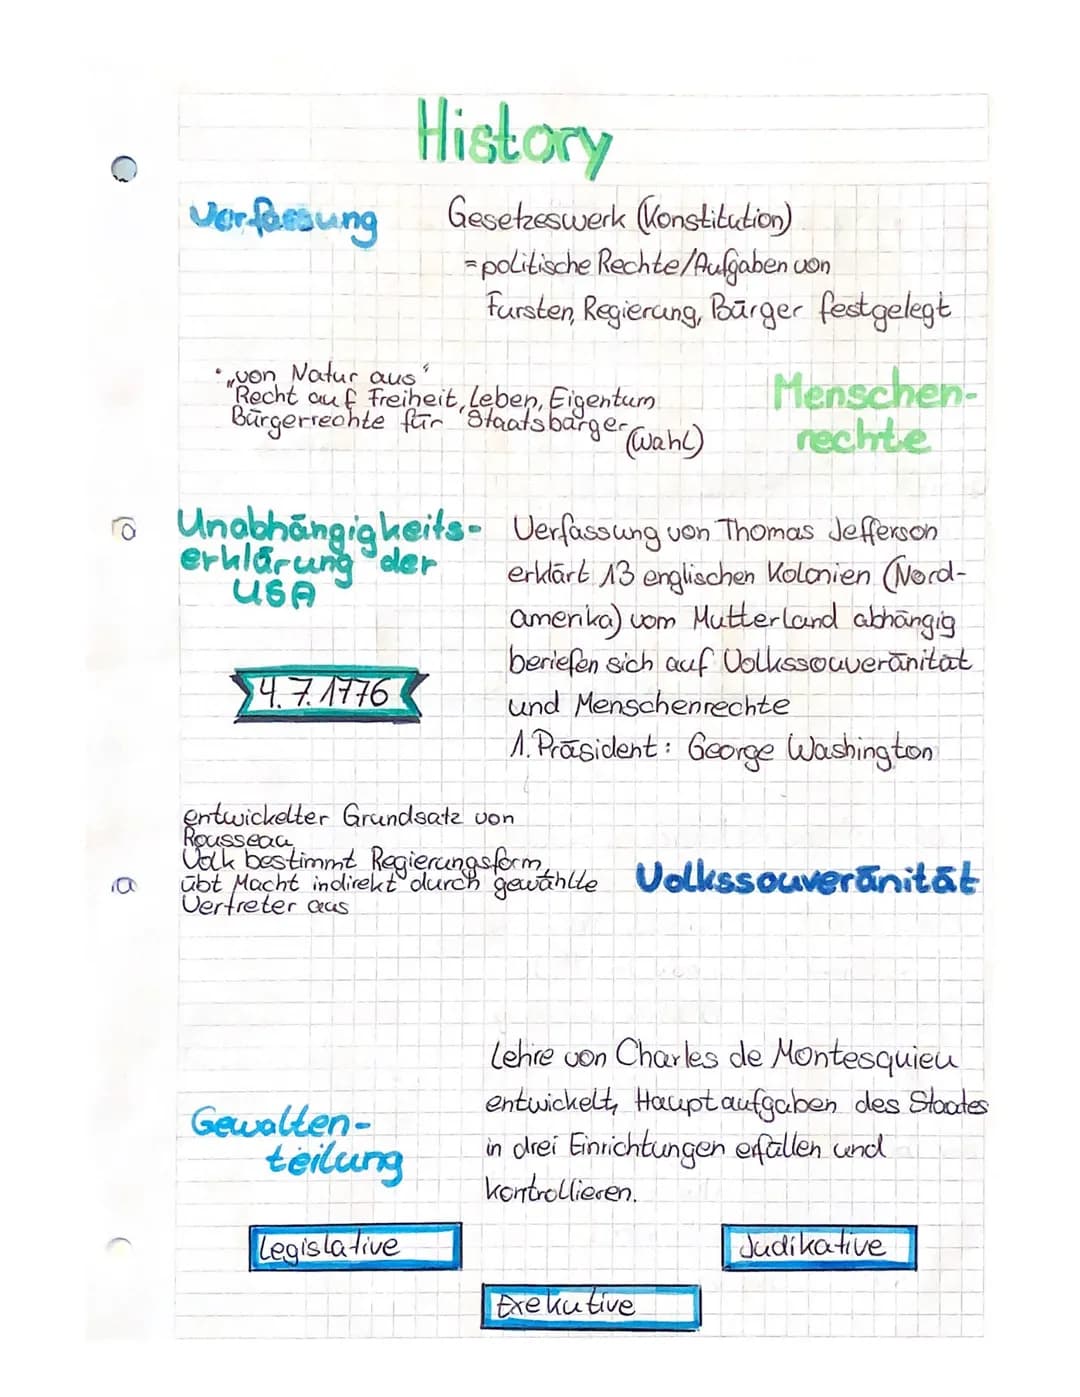 History
Verfassung
Gesetzeswerk (Konstitution)
= politische Rechte/Aufgaben von
Fürsten, Regierung, Bürger festgelegt
• „von Natur aus“
Recht auf Freiheit, Leben, Eigentum
Bürgerrechte für Staatsbürger (Wahl)
Menschen-
rechte
Unabhängigkeits-
erklärung der
USA
4.7.1776
Verfassung von Thomas Jefferson
erklärt 13 englischen Kolonien (Nord-
amerika) vom Mutterland abhängig
beriefen sich auf Volkssouveränität
und Menschenrechte
1. Präsident: George Washington
entwickelter Grundsatz von
Rousseau
Volk bestimmt Regierungsform,
übt Macht indirekt durch gewählte
Vertreter aus
Volkssouveränität
Gewalten-
teilung
Lehre von Charles de Montesquieu
entwickelt, Hauptaufgaben des Staates
in drei Einrichtungen erfüllen und
kontrollieren.
Legislative
Judikative
Exekutive